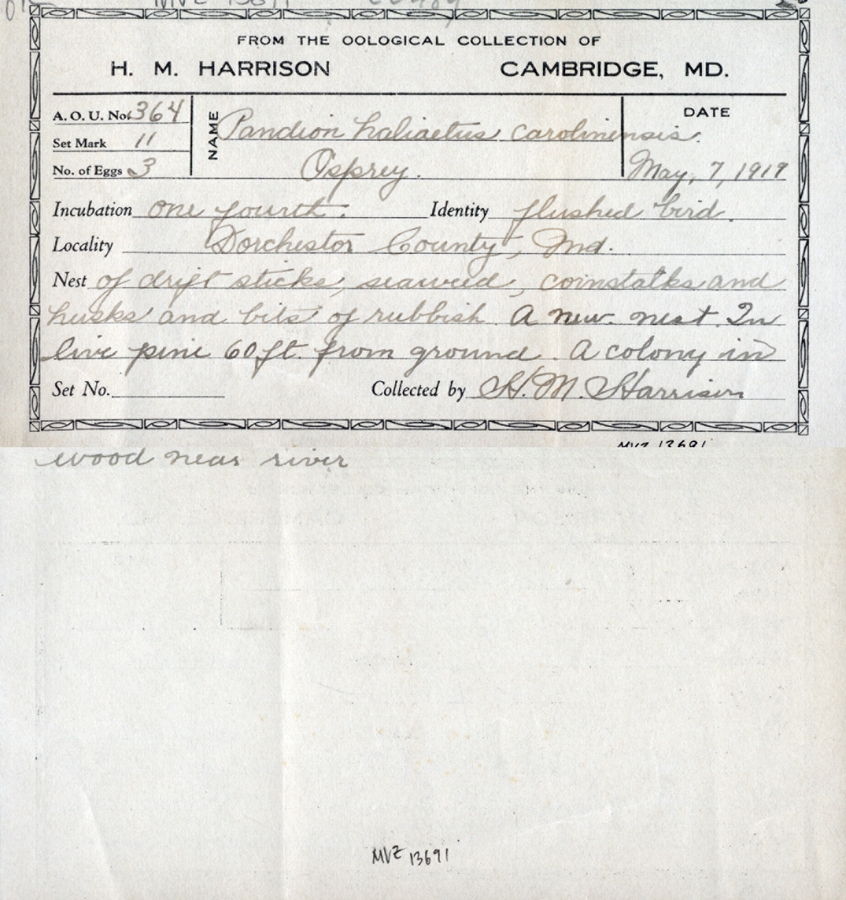 MVZ 13691
FROM THE OOLOGICAL COLLECTION OF
H. M. HARRISON CAMBRIDGE, MD.
A. O. U. No. 364 NAME Pandion haliaetus carolinensis. DATE
Set Mark 11
No. of Eggs 3 Osprey. May, 7, 1919
Incubation one fourth. Identity flushed bird.
Locality Dorchester County, Md.
Nest of drift sticks, seaweed, cornstalks and
husks and bits of rubbish. A new nest. In
live pine 60 ft. from ground. A colony in
Set No. Collected by H. M. Harrison
MVZ 13691
wood near river
MVZ 13691